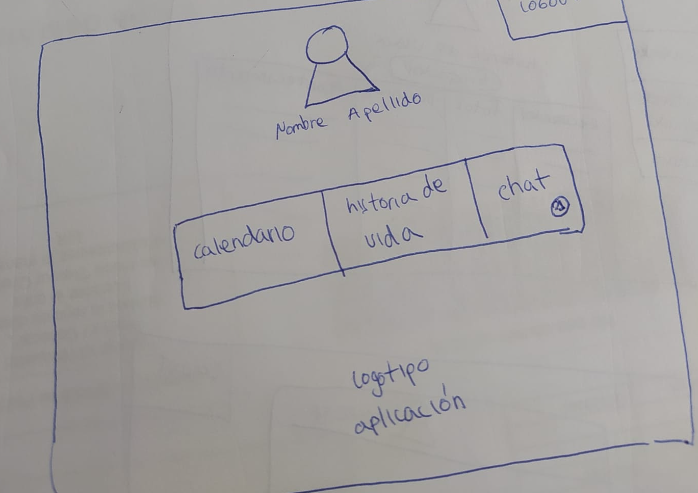 Nombre Apellido
calendario
historia de
vida
chat
1
logotipo
aplicación